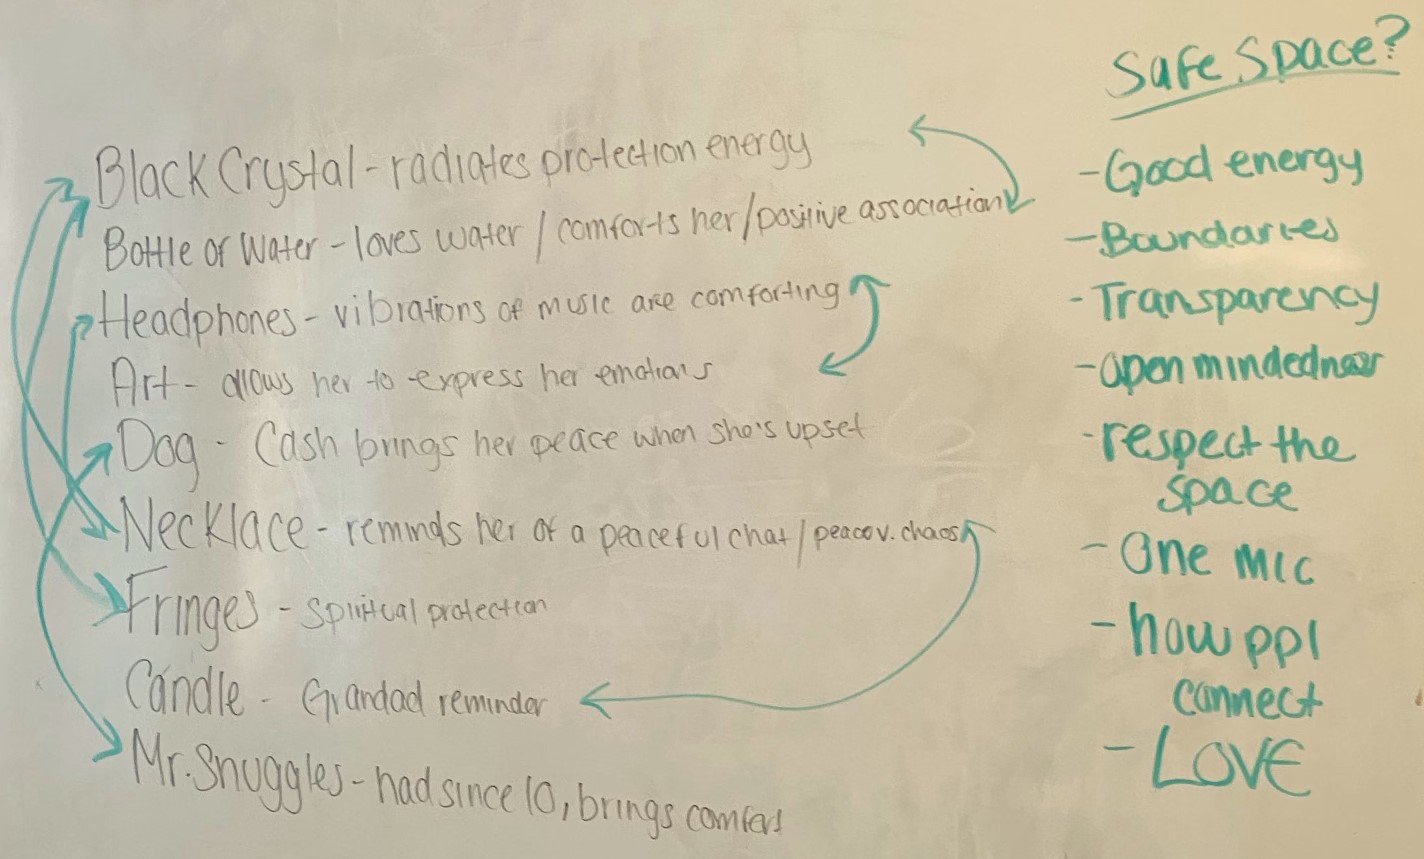 Black Crystal - radiates protection energy
Bottle of Water - loves water / comforts her / positive association
Headphones - vibrations of music are comforting
Art - allows her to express her emotions
Dog - Cash brings her peace when she's upset
Necklace - reminds her of a peaceful chat / peace v. chaos
Fringes - Spiritual protection
Candle - Grandad reminder
Mr. Snuggles - had since 10, brings comfort
Safe Space?
- Good energy
- Boundaries
- Transparency
- Open mindedness
- respect the
space
- One mic
- how ppl
connect
- LOVE